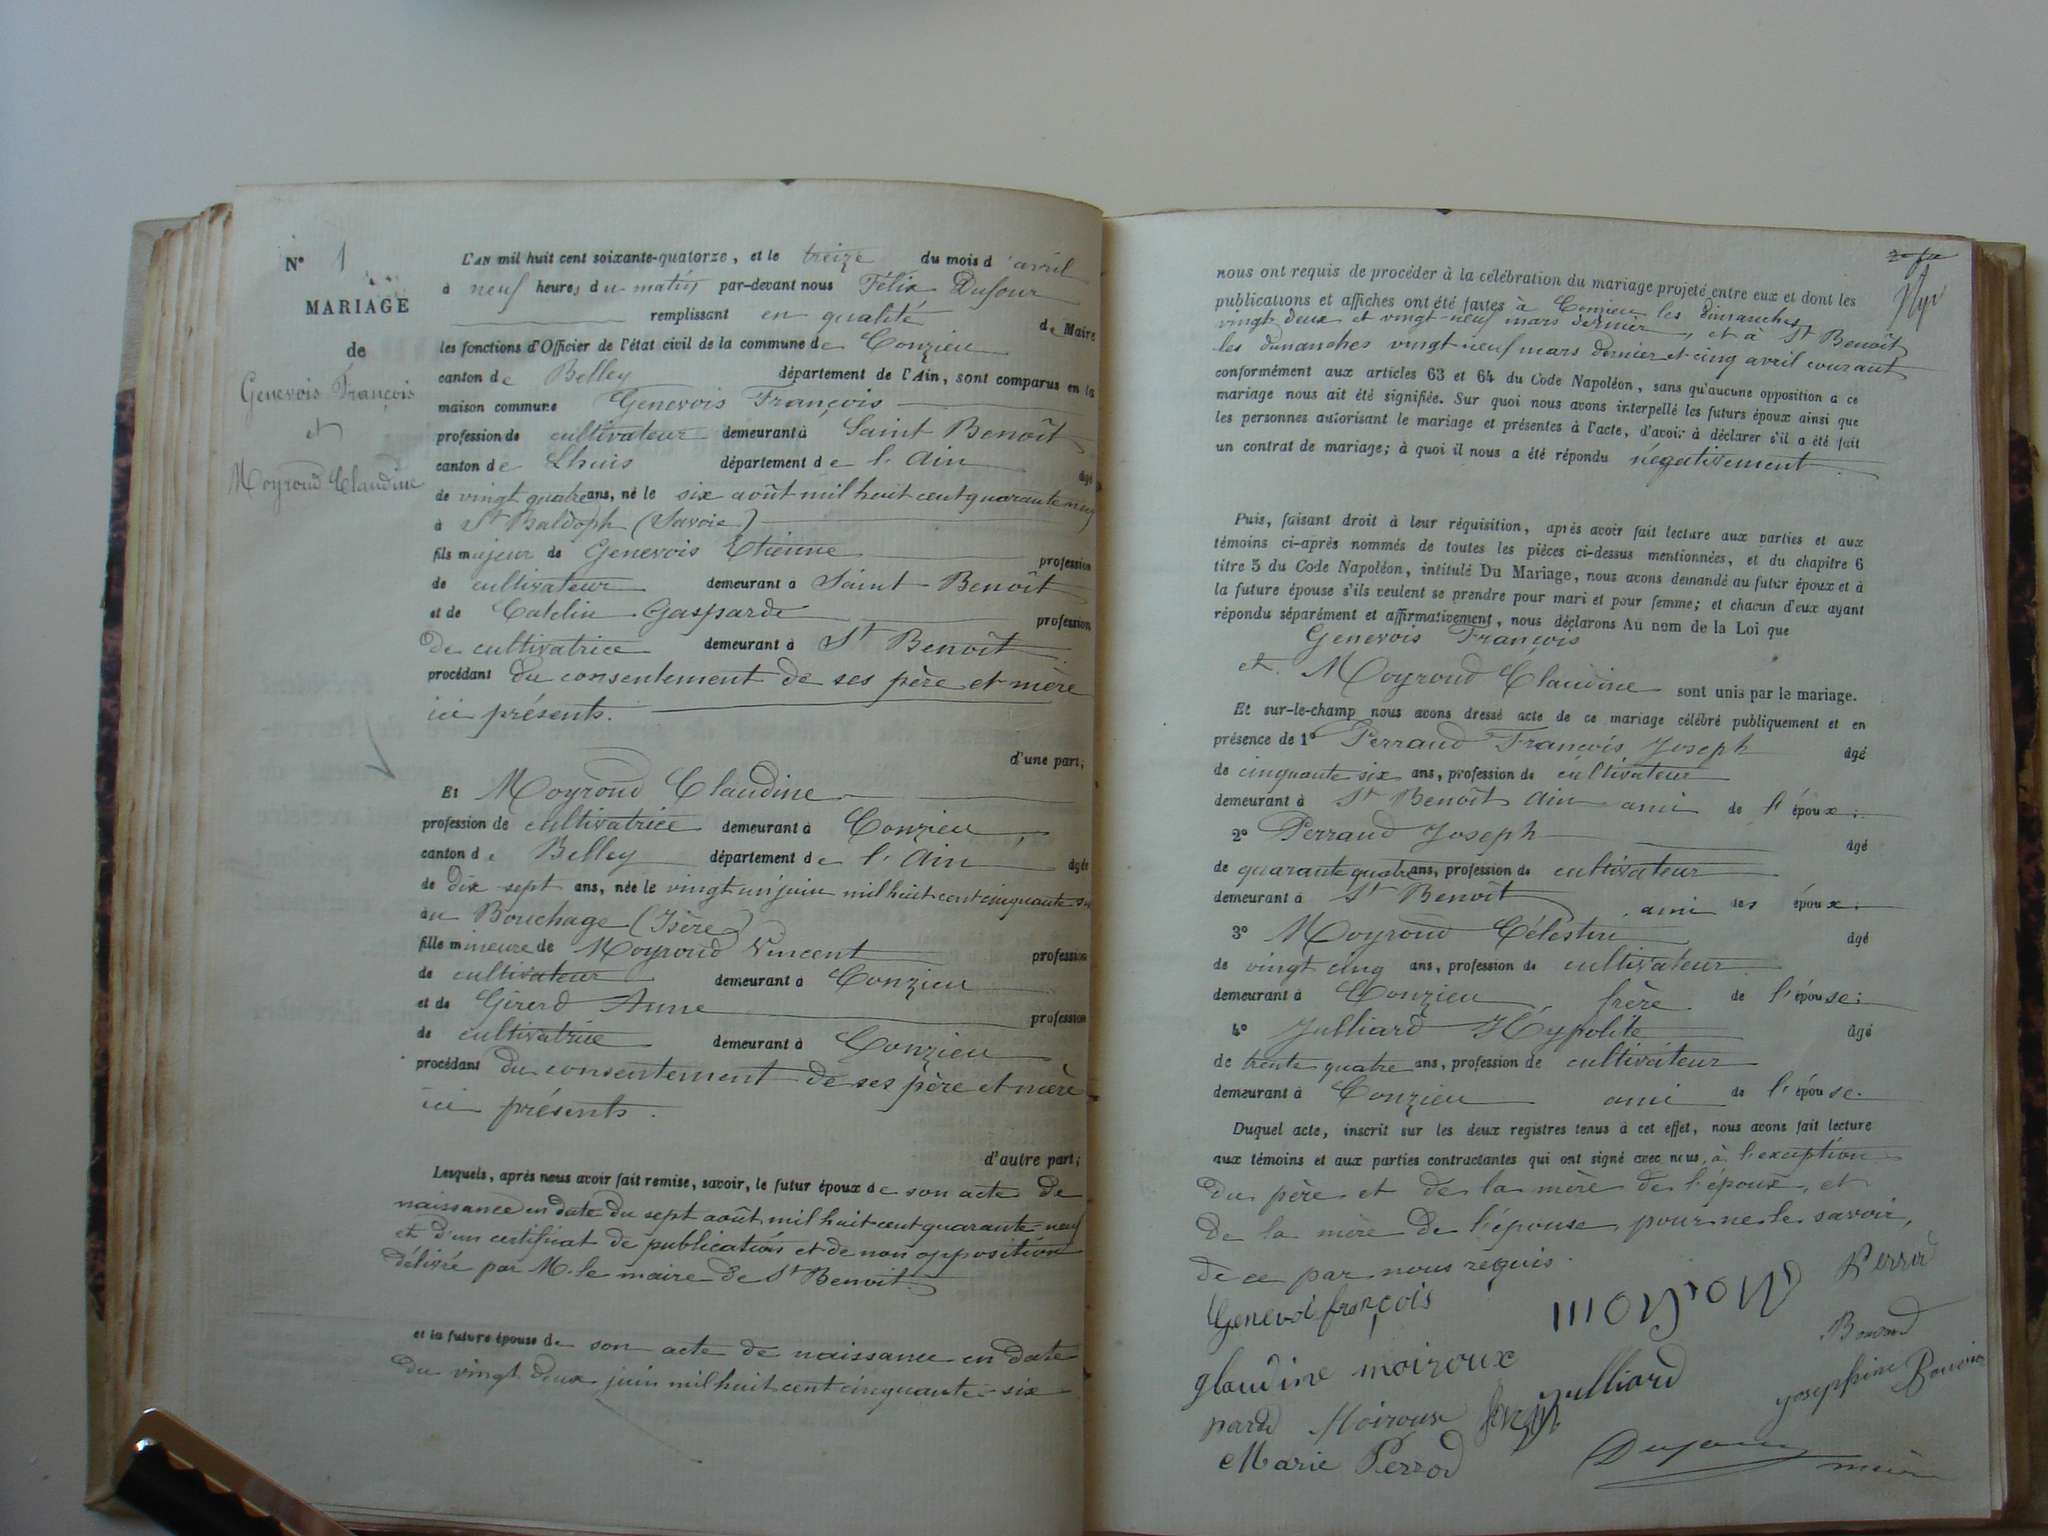 N° 1
MARIAGE
de
Genevois François
et
Moyroud Claudine
L'AN mil huit cent soixante-quatorze, et le treize du mois d'avril
à neuf heures du matin par-devant nous Félix Dufour
remplissant en qualité de Maire
les fonctions d'Officier de l'état civil de la commune de Conzieu
canton de Belley département de l'Ain, sont comparus en la
maison commune Genevois François
profession de cultivateur demeurant à Saint Benoît
canton de Lhuis département de l'Ain âgé
de vingt quatre ans, né le six août mil huit cent quarante neuf
à St Baldoph (Savoie)
fils majeur de Genevois Etienne profession
de cultivateur demeurant à Saint-Benoît
et de Catelin Gasparde profession
de cultivatrice demeurant à St Benoît
procédant du consentement de ses père et mère
ici présents.
d'une part;
Et Moyroud Claudine
profession de cultivatrice demeurant à Conzieu
canton de Belley département de l'Ain âgée
de dix sept ans, née le vingt un juin mil huit cent cinquante six
au Bouchage (Isère)
fille mineure de Moyroud Vincent profession
de cultivateur demeurant à Conzieu
et de Girerd Anne profession
de cultivatrice demeurant à Conzieu
procédant du consentement de ses père et mère
ici présents.
d'autre part;
Lesquels, après nous avoir fait remise, savoir, le futur époux de son acte de
naissance en date du sept août mil huit cent quarante-neuf
et d'un certificat de publications et de non opposition
délivré par M. le maire de St Benoit
et la future épouse de son acte de naissance en date
du vingt deux juin mil huit cent cinquante-six
nous ont requis de procéder à la célébration du mariage projeté entre eux et dont les
publications et affiches ont été faites à Conzieu les dimanches
vingt deux et vingt-neuf mars dernier, et à St Benoît
les dimanches vingt neuf mars dernier et cinq avril courant
conformément aux articles 63 et 64 du Code Napoléon, sans qu'aucune opposition a ce
mariage nous ait été signifiée. Sur quoi nous avons interpellé les futurs époux ainsi que
les personnes autorisant le mariage et présentes à l'acte, d'avoir à déclarer s'il a été fait
un contrat de mariage; à quoi il nous a été répondu négativement.
Puis, faisant droit à leur réquisition, après avoir fait lecture aux parties et aux
témoins ci-après nommés de toutes les pièces ci-dessus mentionnées, et du chapitre 6
titre 5 du Code Napoléon, intitulé Du Mariage, nous avons demandé au futur époux et à
la future épouse s'ils veulent se prendre pour mari et pour femme; et chacun d'eux ayant
répondu séparément et affirmativement, nous déclarons Au nom de la Loi que
Genevois François
et Moyroud Claudine sont unis par le mariage.
Et sur-le-champ nous avons dressé acte de ce mariage célébré publiquement et en
présence de 1° Perraud François Joseph âgé
de cinquante six ans, profession de cultivateur
demeurant à St Benoît Ain ami de l'époux;
2° Perraud Joseph âgé
de quarante quatre ans, profession de cultivateur
demeurant à St Benoît ami des époux;
3° Moyroud Célestin âgé
de vingt cinq ans, profession de cultivateur
demeurant à Conzieu, frère de l'épouse;
4° Julliard Hypolite âgé
de trente quatre ans, profession de cultivateur
demeurant à Conzieu ami de l'épouse.
Duquel acte, inscrit sur les deux registres tenus à cet effet, nous avons fait lecture
aux témoins et aux parties contractantes qui ont signé avec nous, à l'exception
du père et de la mère de l'époux, et
de la mère de l'épouse, pour ne le savoir,
de ce par nous requis.
Genevoi françois
glaudine moiroux
Julliard
Moiroux
Marie Perrod
josephine
Dufour maire